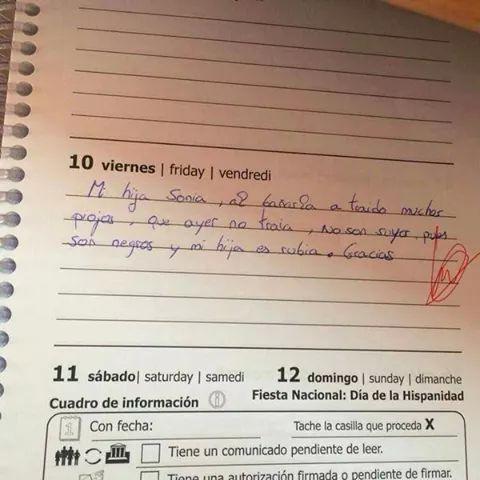 10 viernes | friday | vendredi
Mi hija Sonia, al bañarla a traido muchos
piojos, que ayer no traia, No son suyos, pues
son negros y mi hija es rubia. Gracias
11 sábado | saturday | samedi
12 domingo | sunday | dimanche
Fiesta Nacional: Día de la Hispanidad
Cuadro de información
1 Con fecha:
Tache la casilla que proceda X
Tiene un comunicado pendiente de leer.
Tiene una autorización firmada o pendiente de firmar.